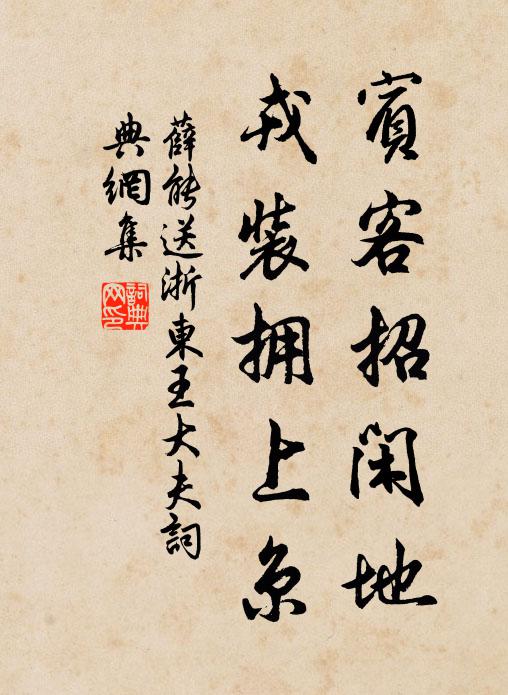 賓客招閑地
戎裝擁上京
薛能送浙東王大夫詞
典網集
詞典網印